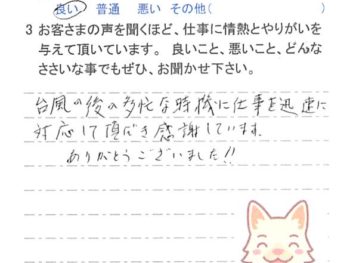 良い 普通 悪い その他( )
3 お客さまの声を聞くほど、仕事に情熱とやりがいを
与えて頂いています。 良いこと、悪いこと、どんな
ささいな事でもぜひ、お聞かせ下さい。
台風の後の多忙な時機に仕事を迅速に
対応して頂だき感謝しています。
ありがとうございました!!